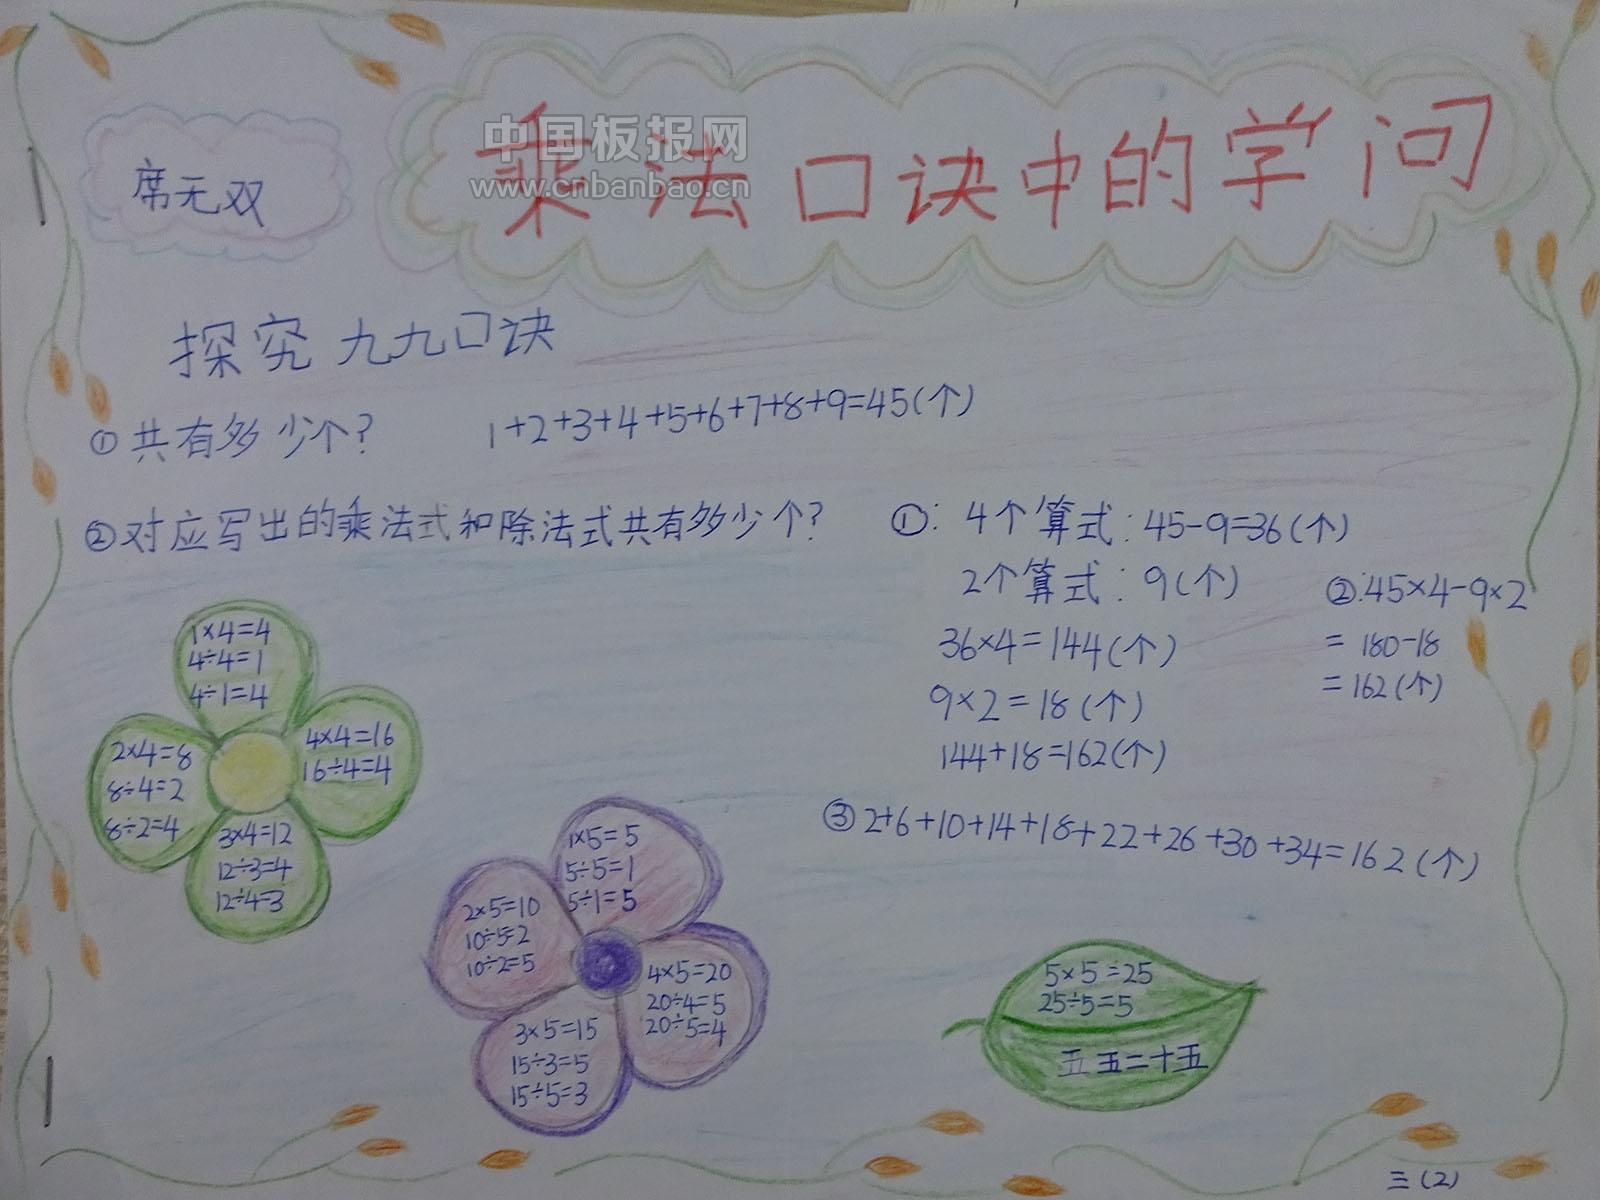 中国板报网
www.cnbanbao.cn
乘法口诀中的学问
席无双
探究九九口诀
①共有多少个? 1+2+3+4+5+6+7+8+9=45(个)
②对应写出的乘法式和除法式共有多少个?
①: 4个算式:45-9=36(个)
2个算式:9(个)
36×4=144(个)
9×2=18(个)
144+18=162(个)
②:45×4-9×2
=180-18
=162(个)
③2+6+10+14+18+22+26+30+34=162(个)
1×4=4
4÷4=1
4÷1=4
2×4=8
8÷4=2
8÷2=4
4×4=16
16÷4=4
3×4=12
12÷3=4
12÷4=3
1×5=5
5÷5=1
5÷1=5
2×5=10
10÷5=2
10÷2=5
4×5=20
20÷4=5
20÷5=4
3×5=15
15÷3=5
15÷5=3
5×5=25
25÷5=5
五五二十五
三(2)